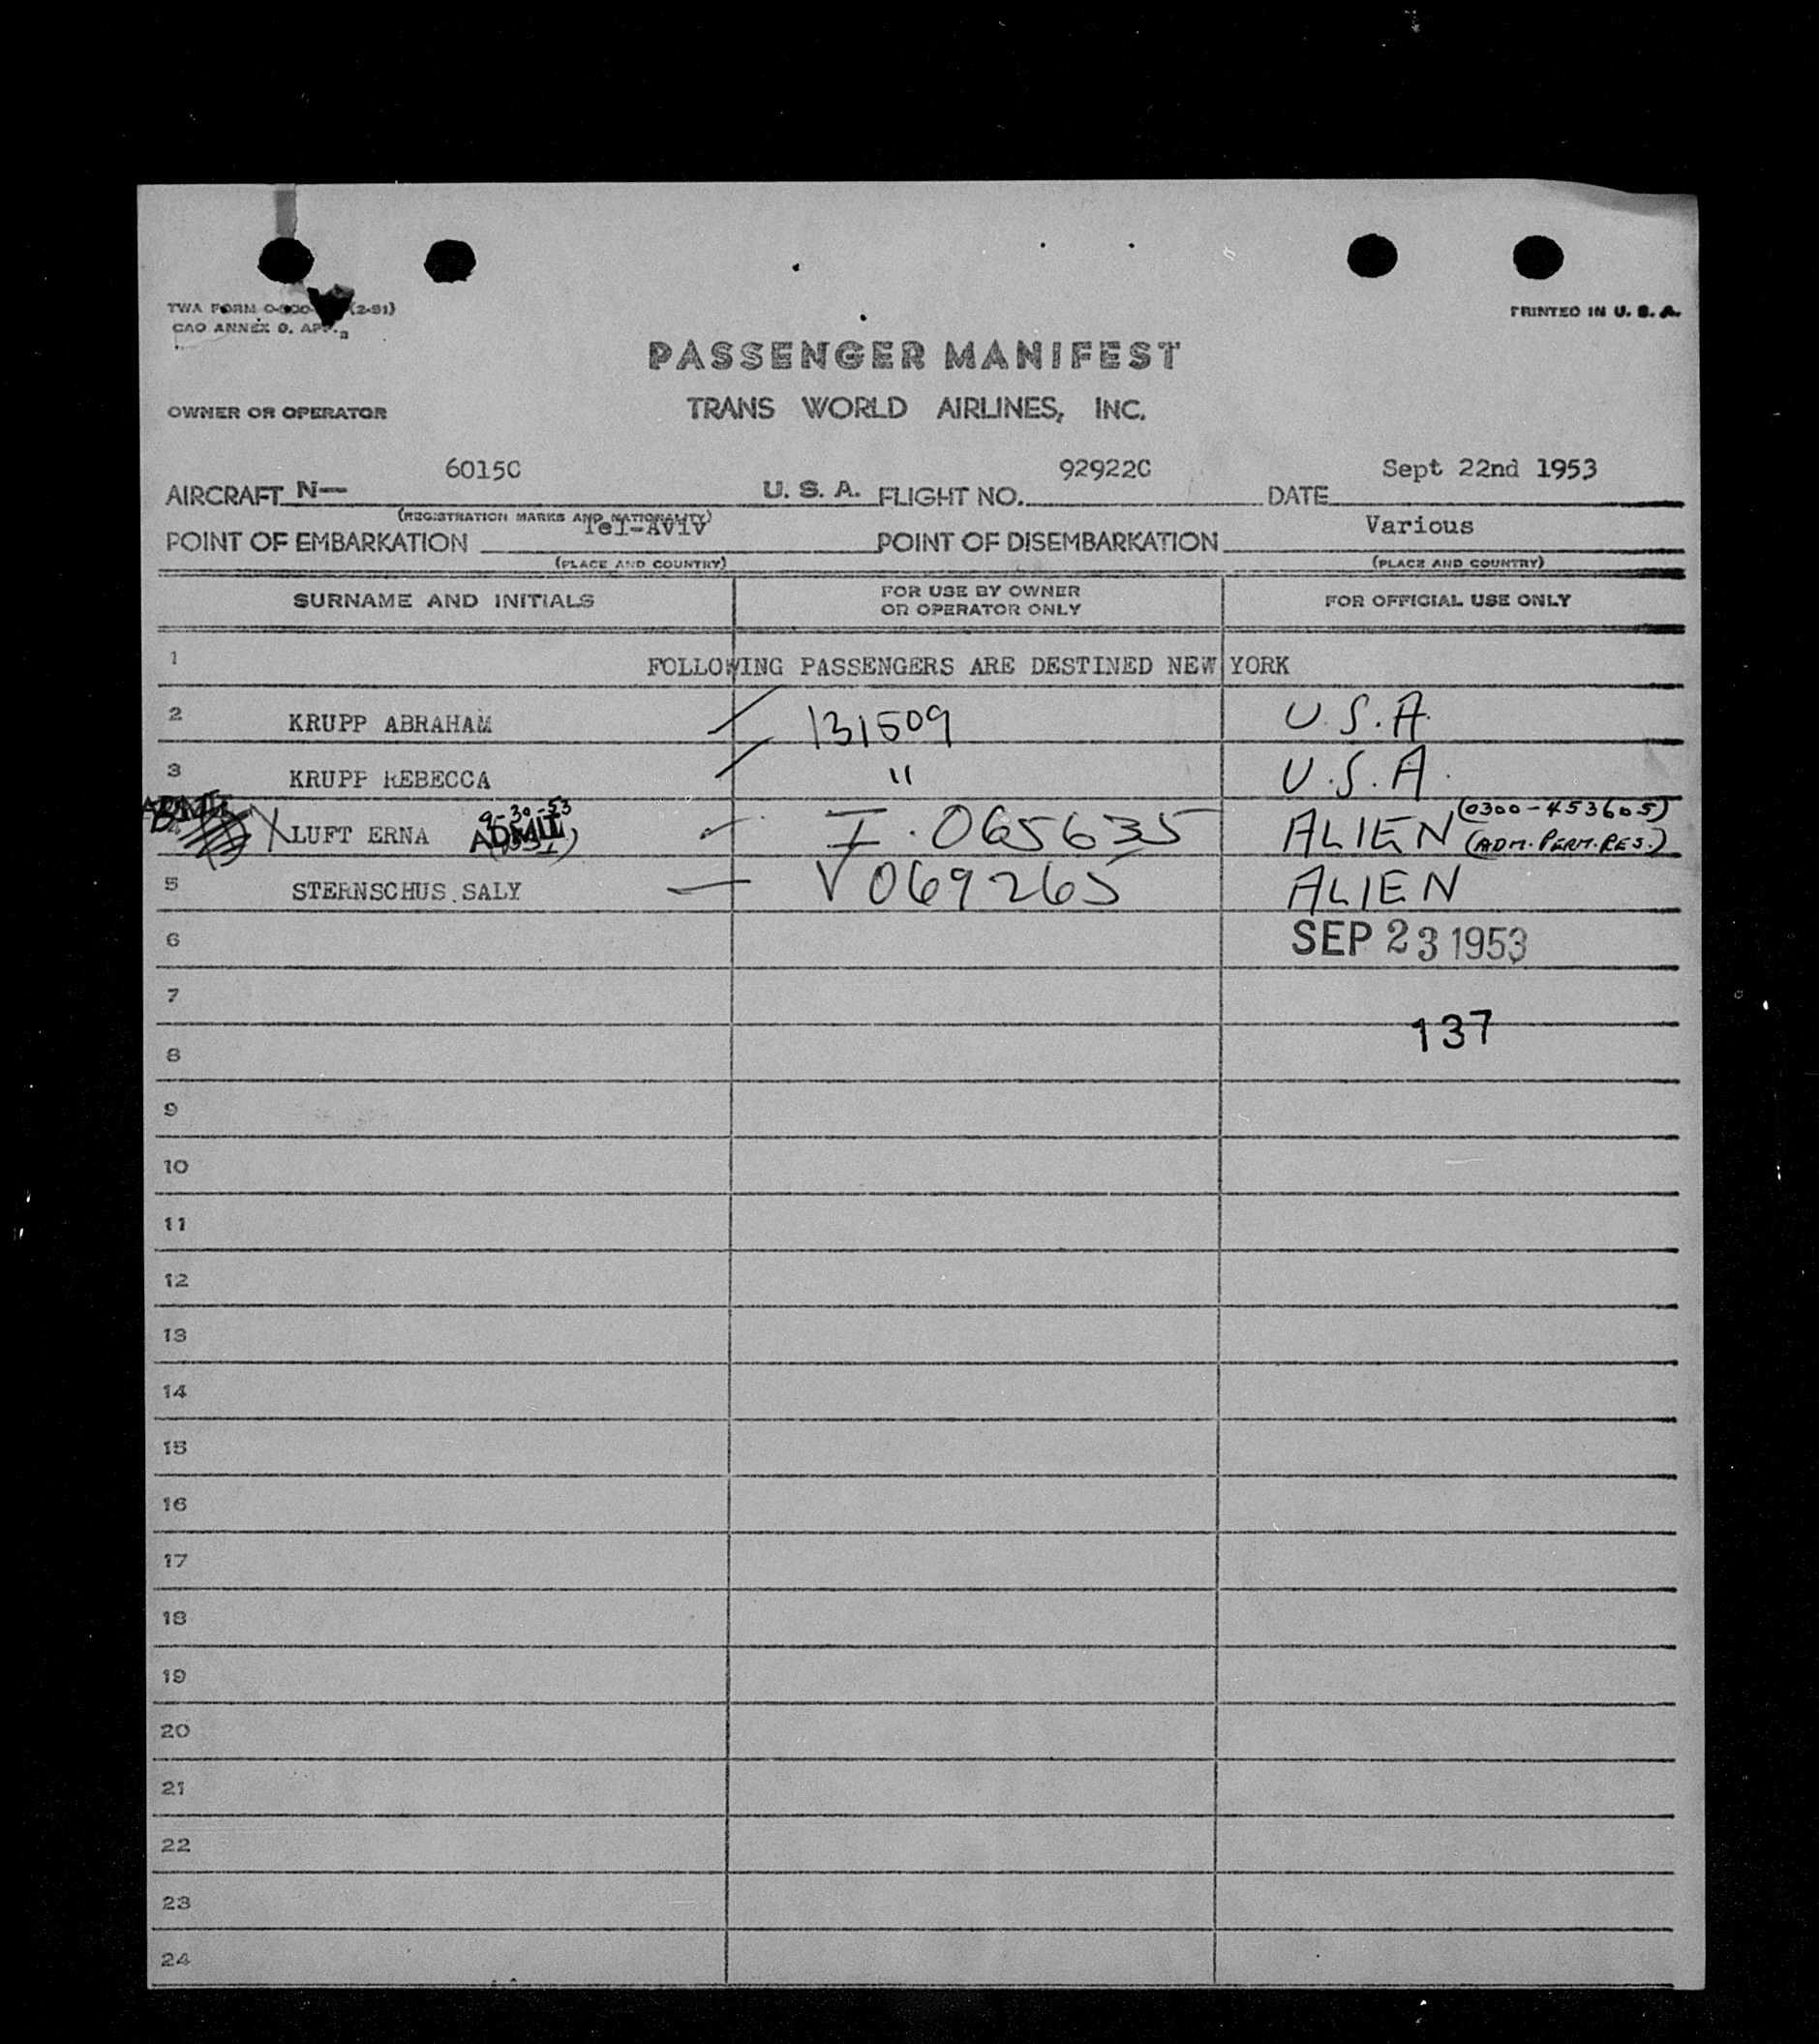 TWA FORM O- (2-51)
PRINTED IN U. S. A.
CAO ANNEX 9, AP
PASSENGER MANIFEST
OWNER OR OPERATOR TRANS WORLD AIRLINES, INC.
6015C 92922C Sept 22nd 1953
AIRCRAFT N— U. S. A. FLIGHT NO. DATE
(REGISTRATION MARKS AND NATIONALITY)
Tel-Aviv Various
POINT OF EMBARKATION POINT OF DISEMBARKATION
(PLACE AND COUNTRY) (PLACE AND COUNTRY)
SURNAME AND INITIALS FOR USE BY OWNER OR OPERATOR ONLY FOR OFFICIAL USE ONLY
1 FOLLOWING PASSENGERS ARE DESTINED NEW YORK
2 KRUPP ABRAHAM 131509 U.S.A.
3 KRUPP REBECCA " U.S.A.
9-30-53 (0300-453605)
X LUFT ERNA ADMIT I.065635 ALIEN (ADM. PERM. RES.)
5 STERNSCHUS SALY V069265 ALIEN
6 SEP 23 1953
7
137
8
9
10
11
12
13
14
15
16
17
18
19
20
21
22
23
24